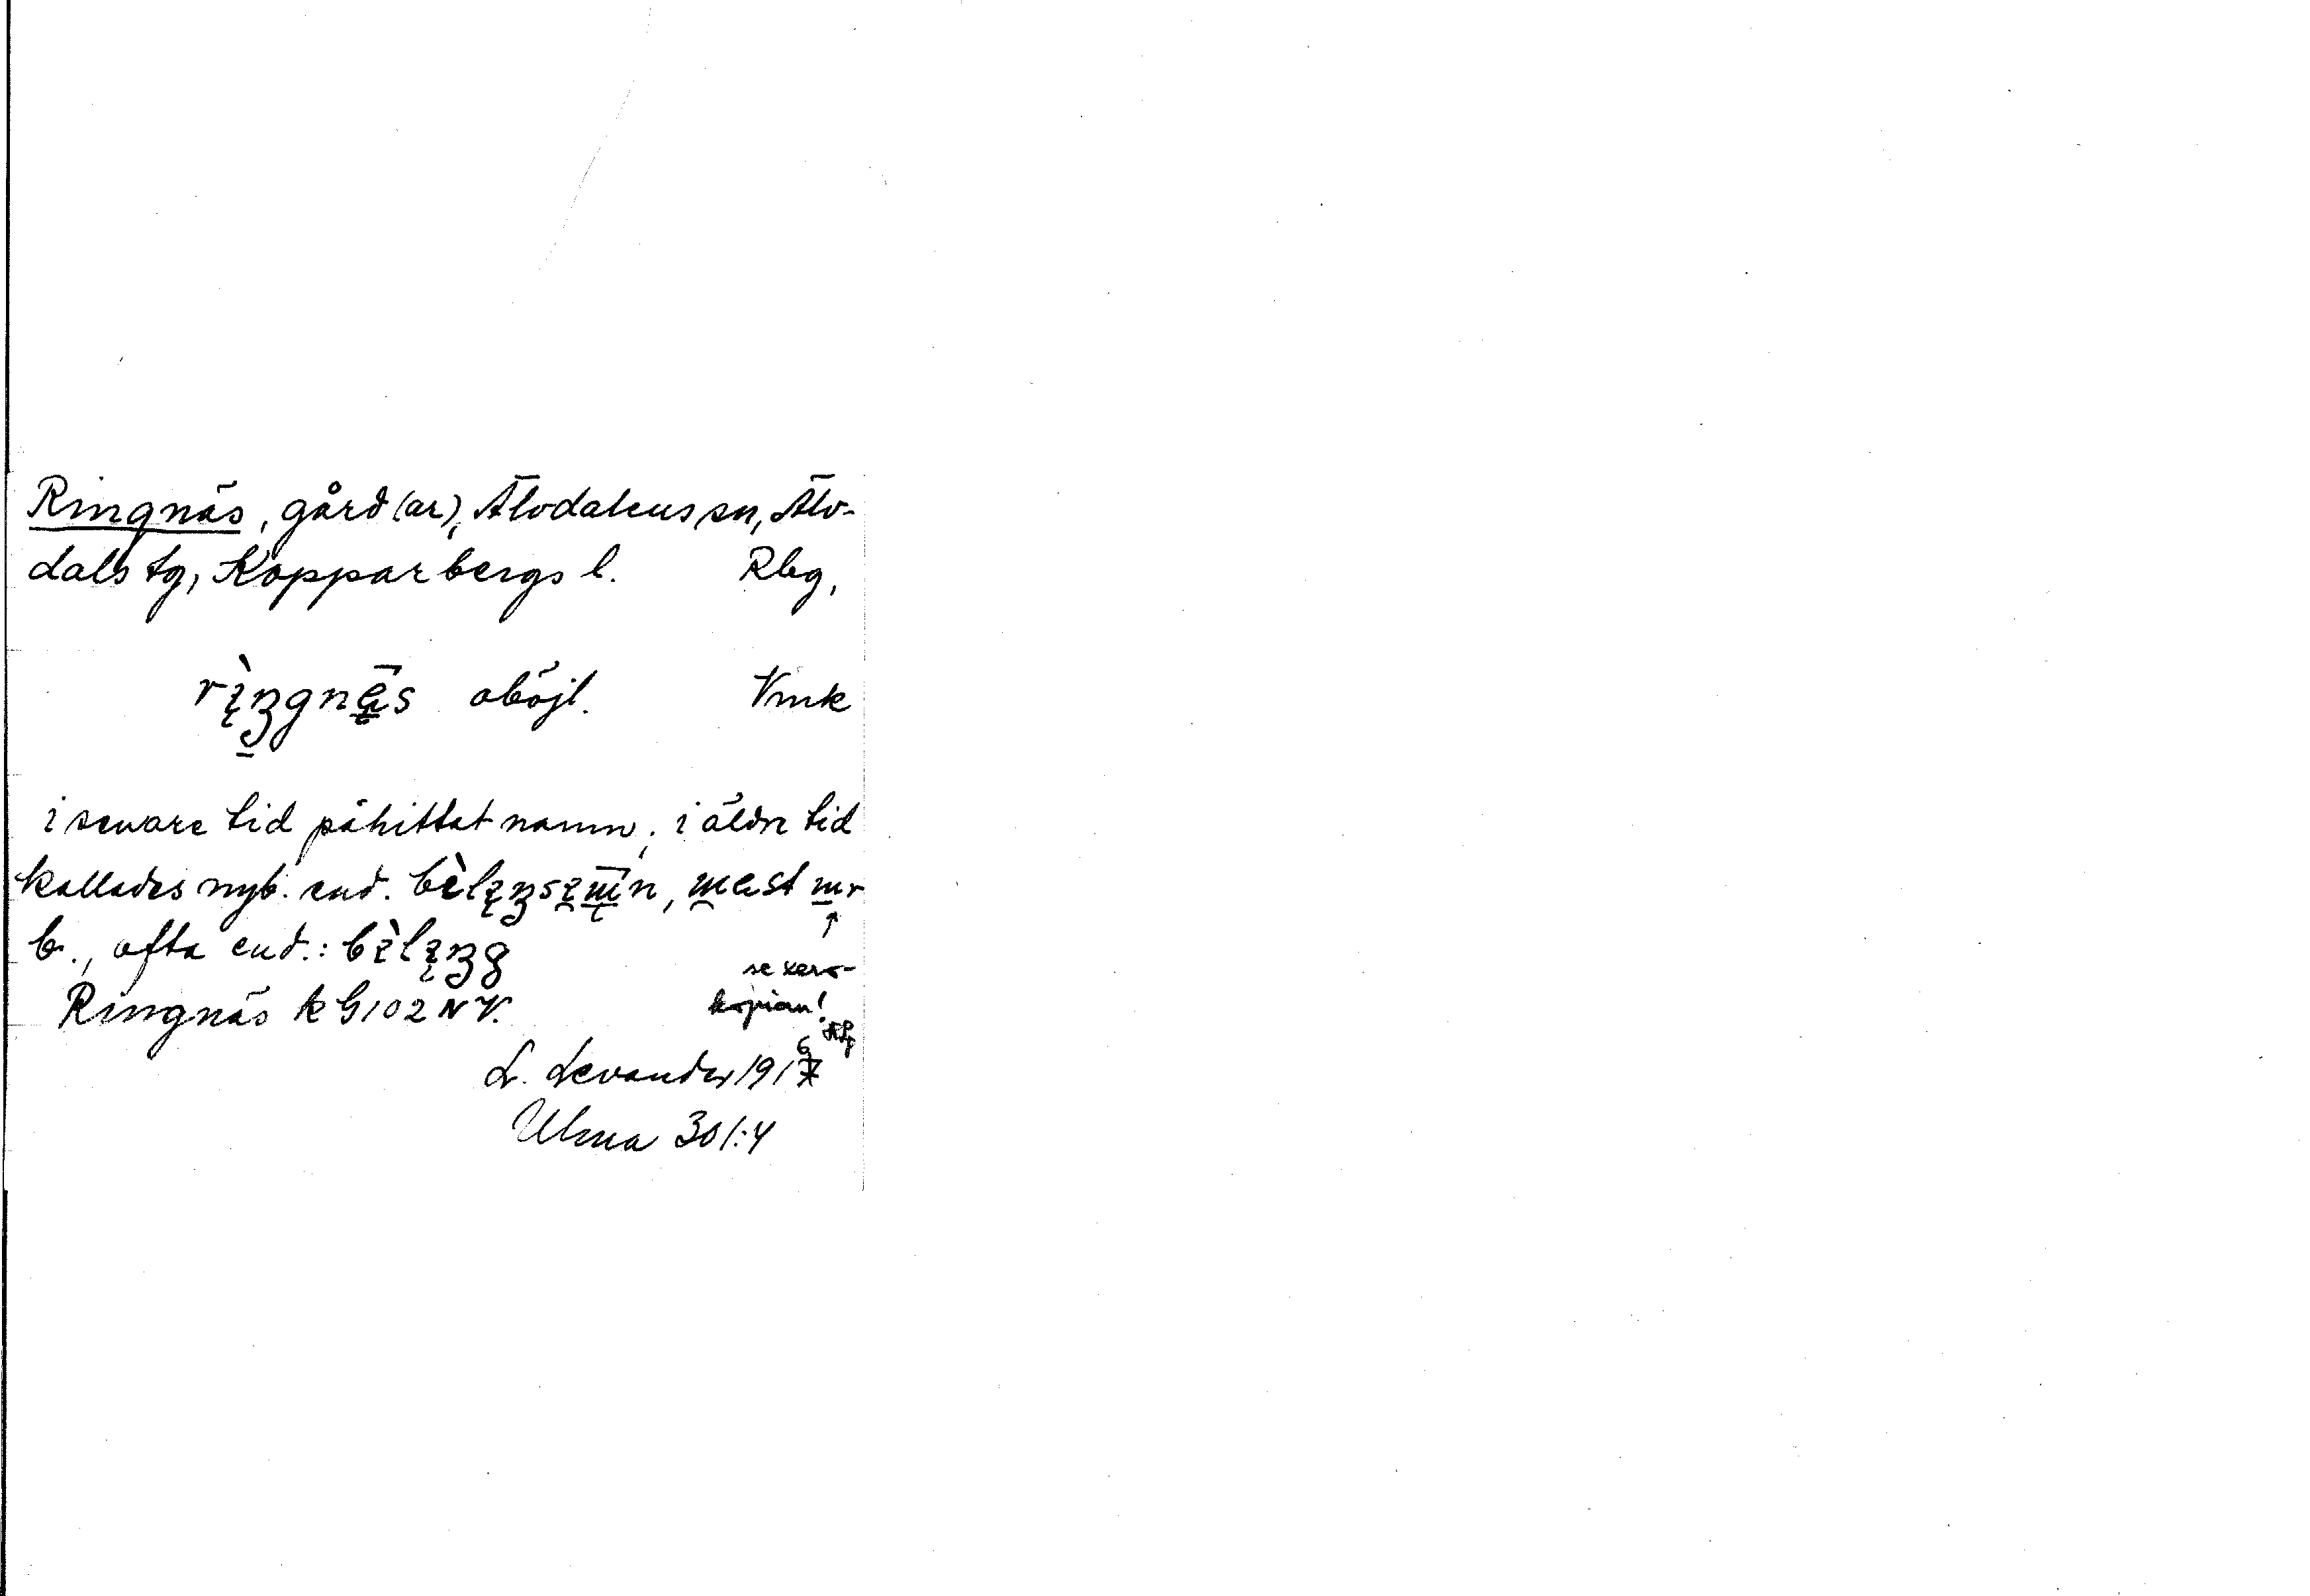 Ringnäs, gård(ar), Älvdalens sn, Älv-
dals tg, Kopparbergs l. Rbg,
oböjl. Vmk
i senare tid påhittat namn; i äldre tid
kallades nyb. end.
b., ofta end.:
se xero-
Ringnäs RG102NV. kopian!
L. Levander 1916
Ulma 301:4